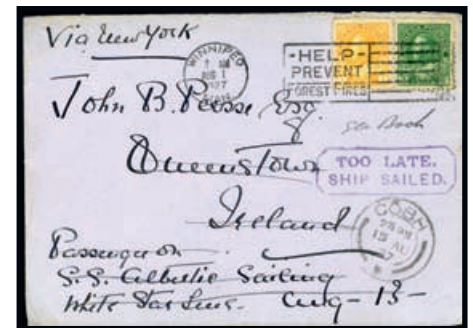 Via New York
WINNIPEG
AUG 1
-HELP-
PREVENT
FOREST FIRES
John B. Esq
Queenstown
TOO LATE.
SHIP SAILED.
Ireland
COBH
AU
Passenger on
S.S. Sailing
White Star Line. Aug-13-